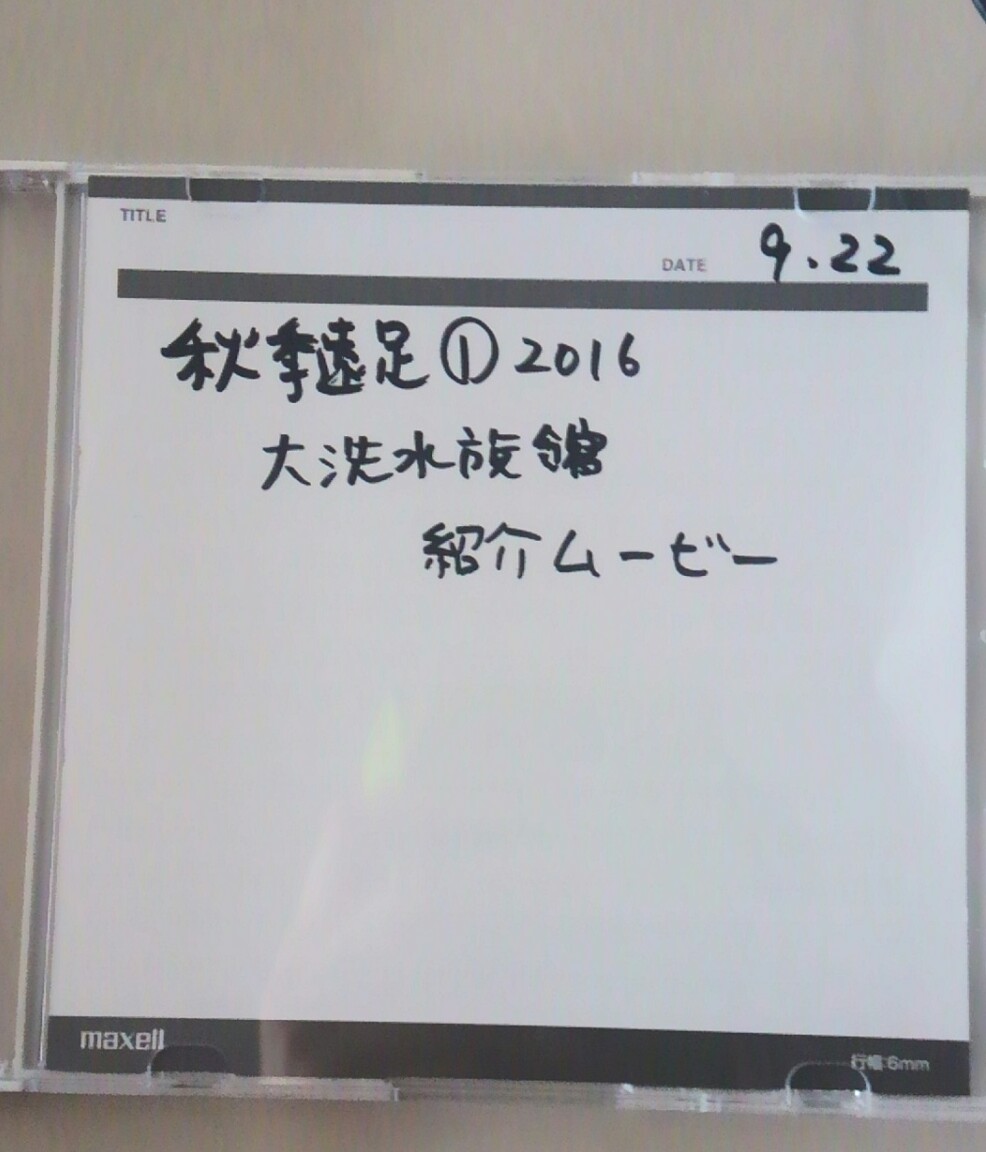 TITLE
DATE 9.22
秋季遠足① 2016
大洗水族館
紹介ムービー
maxell
行幅:6mm